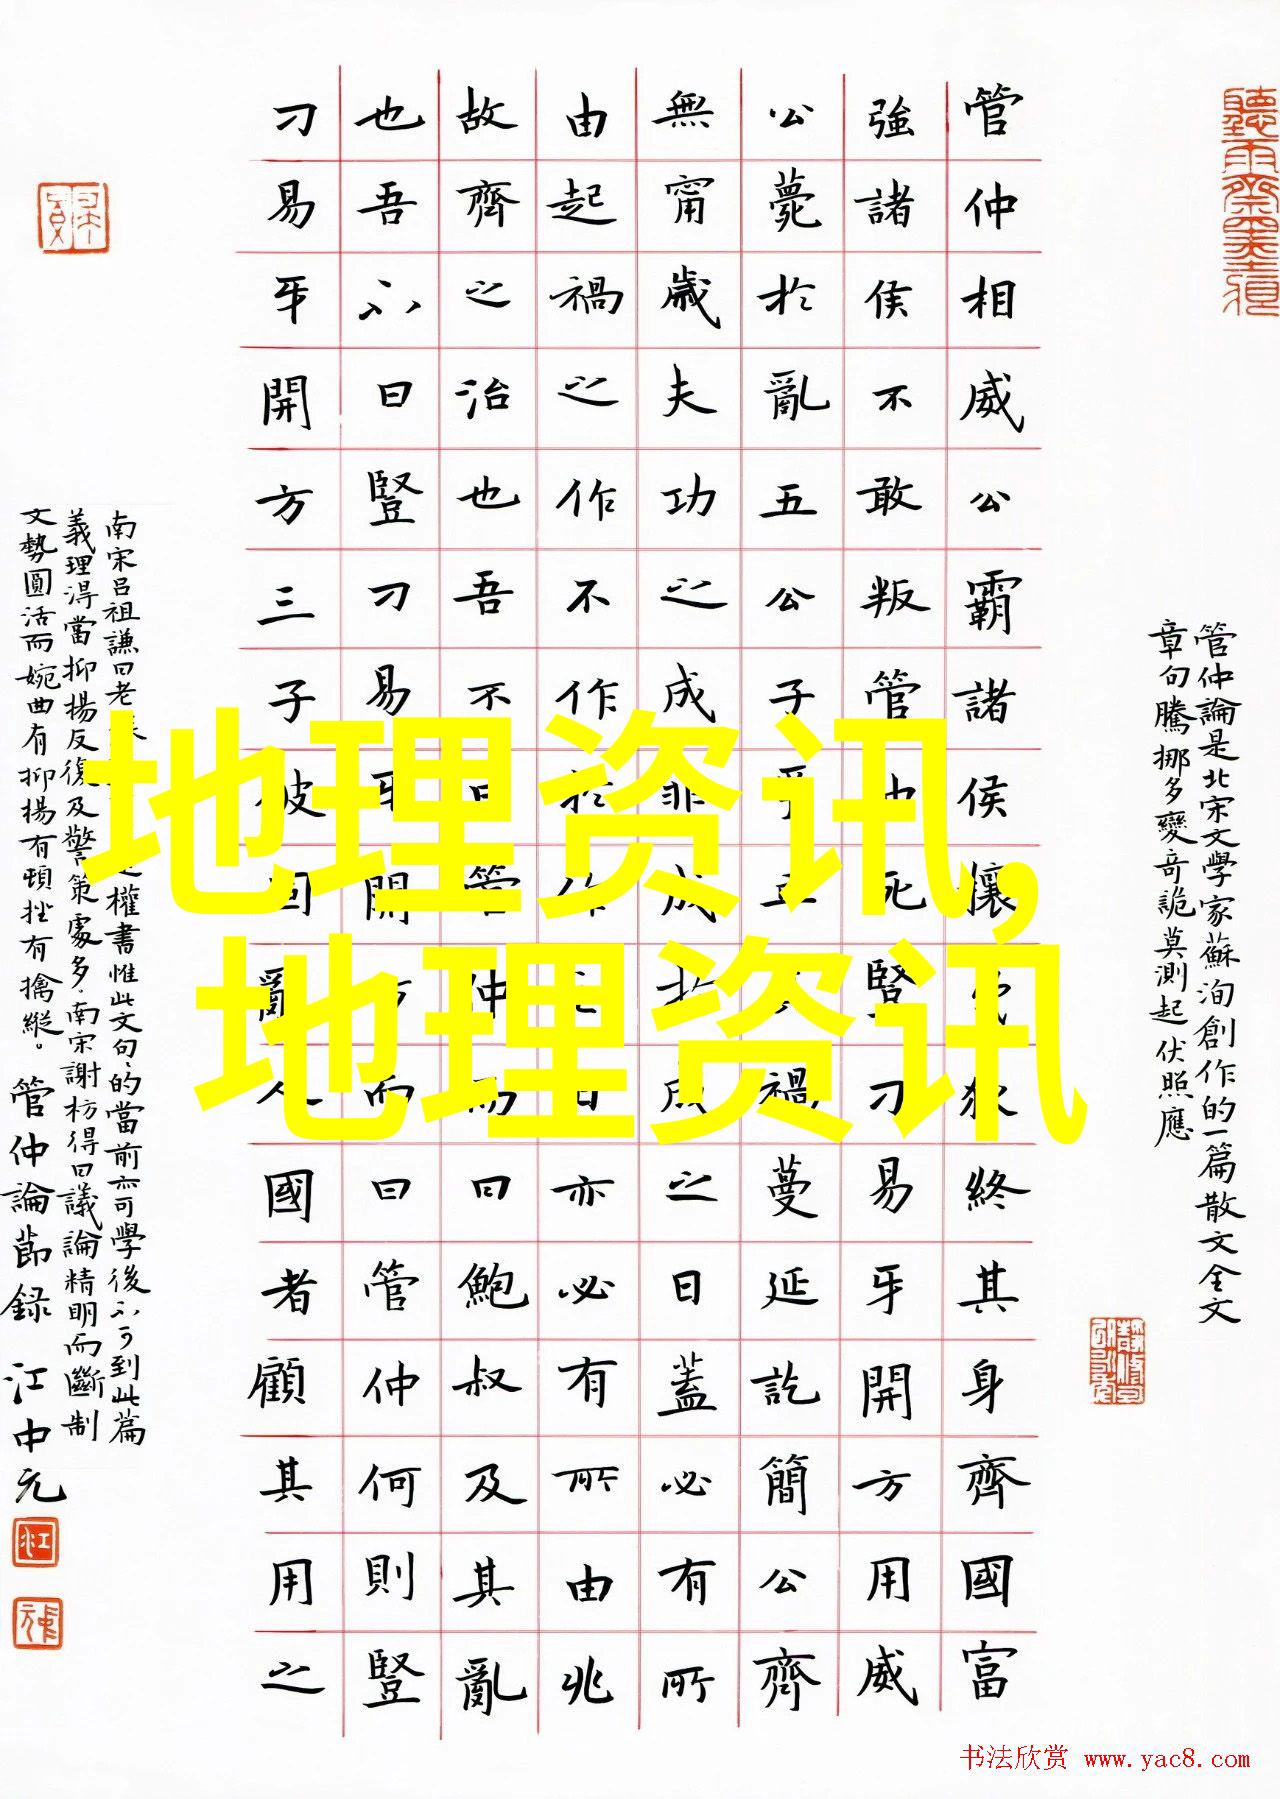 管仲論是北宋文學家蘇洵創作的一篇散文全文
章句騰挪多變奇詭莫測起伏照應
管仲相威公霸諸侯攘戎狄終其身齊國富
強諸侯不敢叛管仲死豎刁易牙開方用威
公薨於亂五公子爭立其禍蔓延訖簡公齊
無甯歲夫功之成非成於成之日蓋必有所
由起禍之作不作於作之日亦必有所由兆
故齊之治也吾不曰管仲而曰鮑叔及其亂
也吾不曰豎刁易牙開方而曰管仲何則豎
刁易牙開方三子彼固亂人國者顧其用之
南宋呂祖謙曰老泉權書惟此文句的當前亦可學後不可到此篇
義理淂當抑揚反復及警策處多.南宋謝枋得曰議論精明而斷制
文勢圓活而婉曲有抑揚有頓挫有擒縱。管仲論節録 江中元
地理资讯,
地理资讯
书法欣赏 www.yac8.com